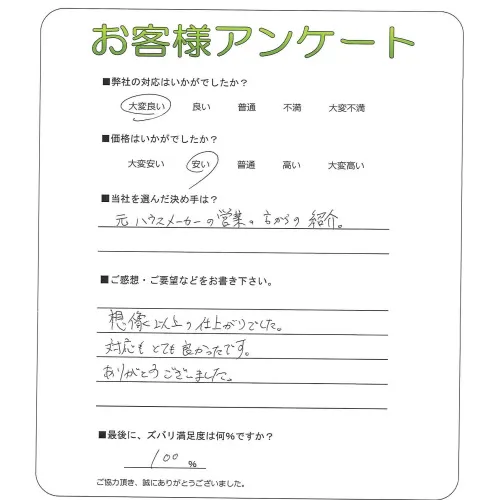 お客様アンケート
■弊社の対応はいかがでしたか？
大変良い 良い 普通 不満 大変不満
■価格はいかがでしたか？
大変安い 安い 普通 高い 大変高い
■当社を選んだ決め手は？
元ハウスメーカーの営業の方からの紹介。
■ご感想・ご要望などをお書き下さい。
想像以上の仕上がりでした。
対応もとても良かったです。
ありがとうございました。
■最後に、ズバリ満足度は何％ですか？
100 ％
ご協力頂き、誠にありがとうございました。